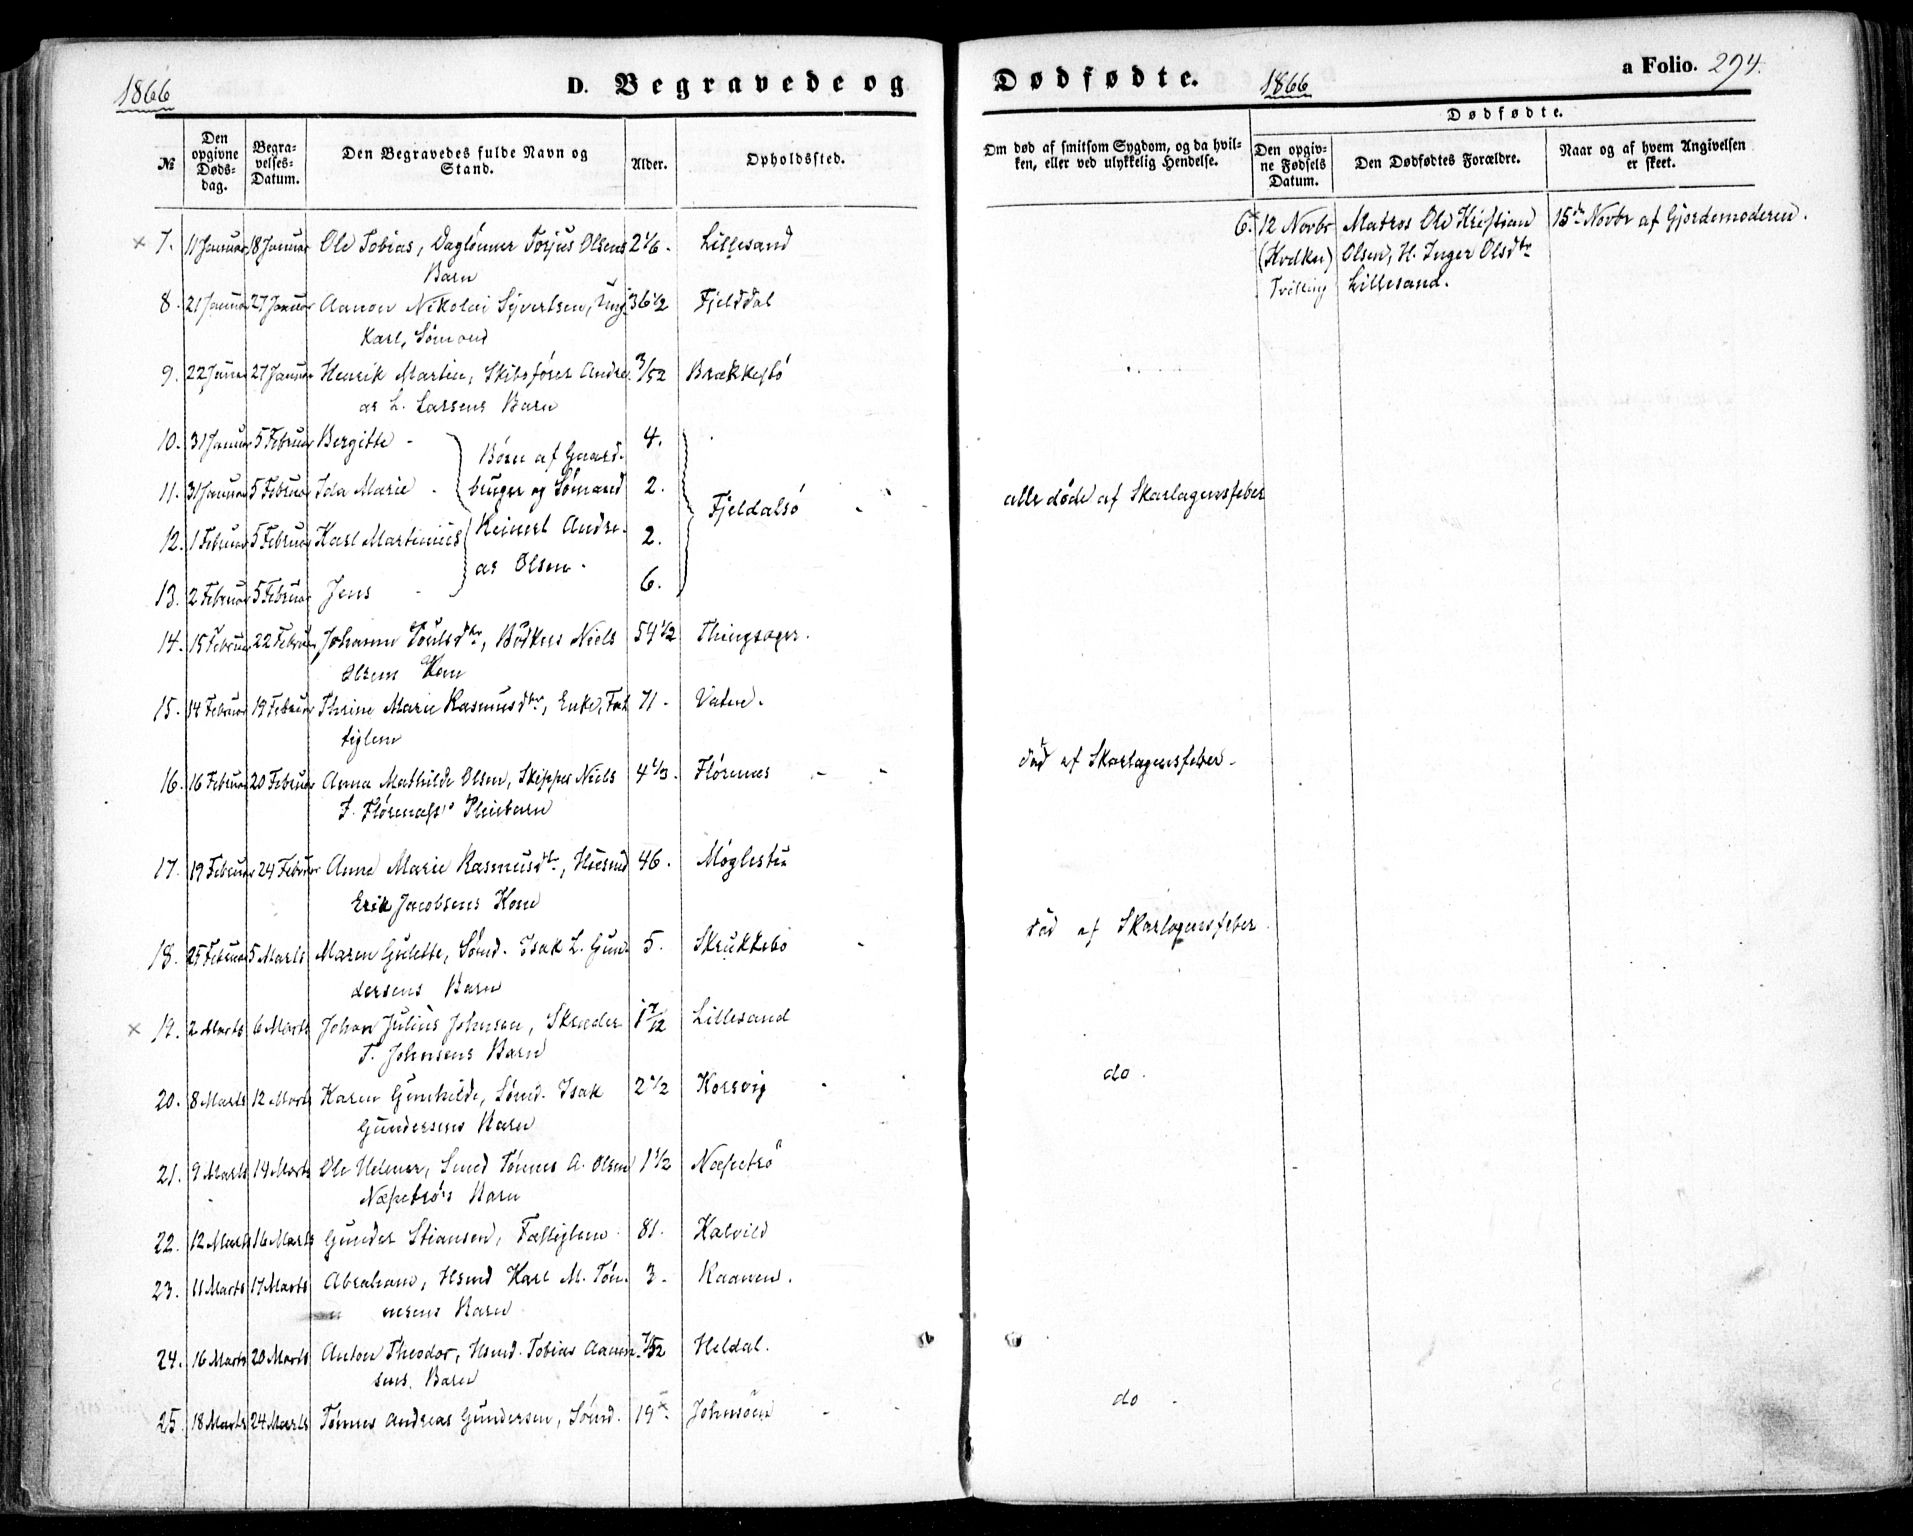 1866
D. Begravede og Dødfødte.
1866
a Folio. 294.
№
Den opgivne Døds-dag.
Begra-velses-Datum.
Den Begravedes fulde Navn og Stand.
Alder.
Opholdssted.
Om død af smitsom Sygdom, og da hvil-
ken, eller ved ulykkelig Hendelse.
Dødfødte.
Den opgiv-ne Fødsels Datum.
Den Dødfødtes Forældre.
Naar og af hvem Angivelsen er skeet.
× 7. 11 Januar 18 Januar Ole Tobias, Daglønner Torjus Olsens 2 1/6. Lillesand
Barn
8. 21 Januar 27 Januar Aanon Nikolai Syvertsen, Ung- 36 1/2 Fjelddal
karl, Sømand
9. 22 Januar 27 Januar Henrik Martin, Skibsfører Andre- 3/52 Brækkestö
as L. Larsens Barn
10. 31 Januar 5 Februar Bergitte 4.
Børn af Gaard-
11. 31 Januar 5 Februar Ida Marie bruger og Sømand 2.
Fjeldalsö alle døde af Skarlagensfeber
12. 1 Februar 5 Februar Karl Martinius Reinert Andre- 2.
as Olsen.
13. 2 Februar 5 Februar Jens 6.
14. 15 Februar 22 Februar Johanne Toulsdtr, Bödkers Niels 54 1/2 Thingsager.
Olsens Kone
15. 14 Februar 19 Februar Thrine Marie Rasmusdtr, Enke, Fat- 71. Vaten.
tiglem
16. 16 Februar 20 Februar Anna Mathilde Olsen, Skipper Niels 4 1/3. Flörenes död af Skarlagensfeber.
F. Flörenæss's Pleiebarn
17. 19 Februar 24 Februar Anne Marie Rasmusdtr, Huusmd 46. Møglestu
Erik Jacobsens Kone
18. 25 Februar 5 Marts Maren Gulette, Sømd. Isak L. Gun- 5. Skrukkebo död af Skarlagensfeber.
dersens Barn
× 19. 2 Marts 6 Marts Johan Julius Johnsen, Skræder 1 7/12 Lillesand
T. Johnsens Barn
20. 8 Marts 12 Marts Karen Gunhilde, Sømd. Isak 2 1/2 Korsvig do.
Gundersens Barn
21. 9 Marts 14 Marts Ole Helmer, Smed Tönnes A. Olsen 1 1/2 Næsetsö
Næsetsö's Barn
22. 12 Marts 16 Marts Gunder Stiansen, Fattiglem 81. Kalvild
23. 11 Marts 17 Marts Abraham, Hsmd Karl M. Tön- 3. Kaanen.
nesens Barn
24. 16 Marts 20 Marts Anton Theodor, Hsmd. Tobias Aanon- 7/52 Heldal.
sens Barn
25. 18 Marts 24 Marts Tønnes Andreas Gundersen, Sømd. 19 Johnsöen do.
6. 12 Novbr Matros Ole Kristian 15de Novbr af Gjordemoderen.
(Kvdkn) Olsen, H. Inger Olsdtr
Tvilling Lillesand.